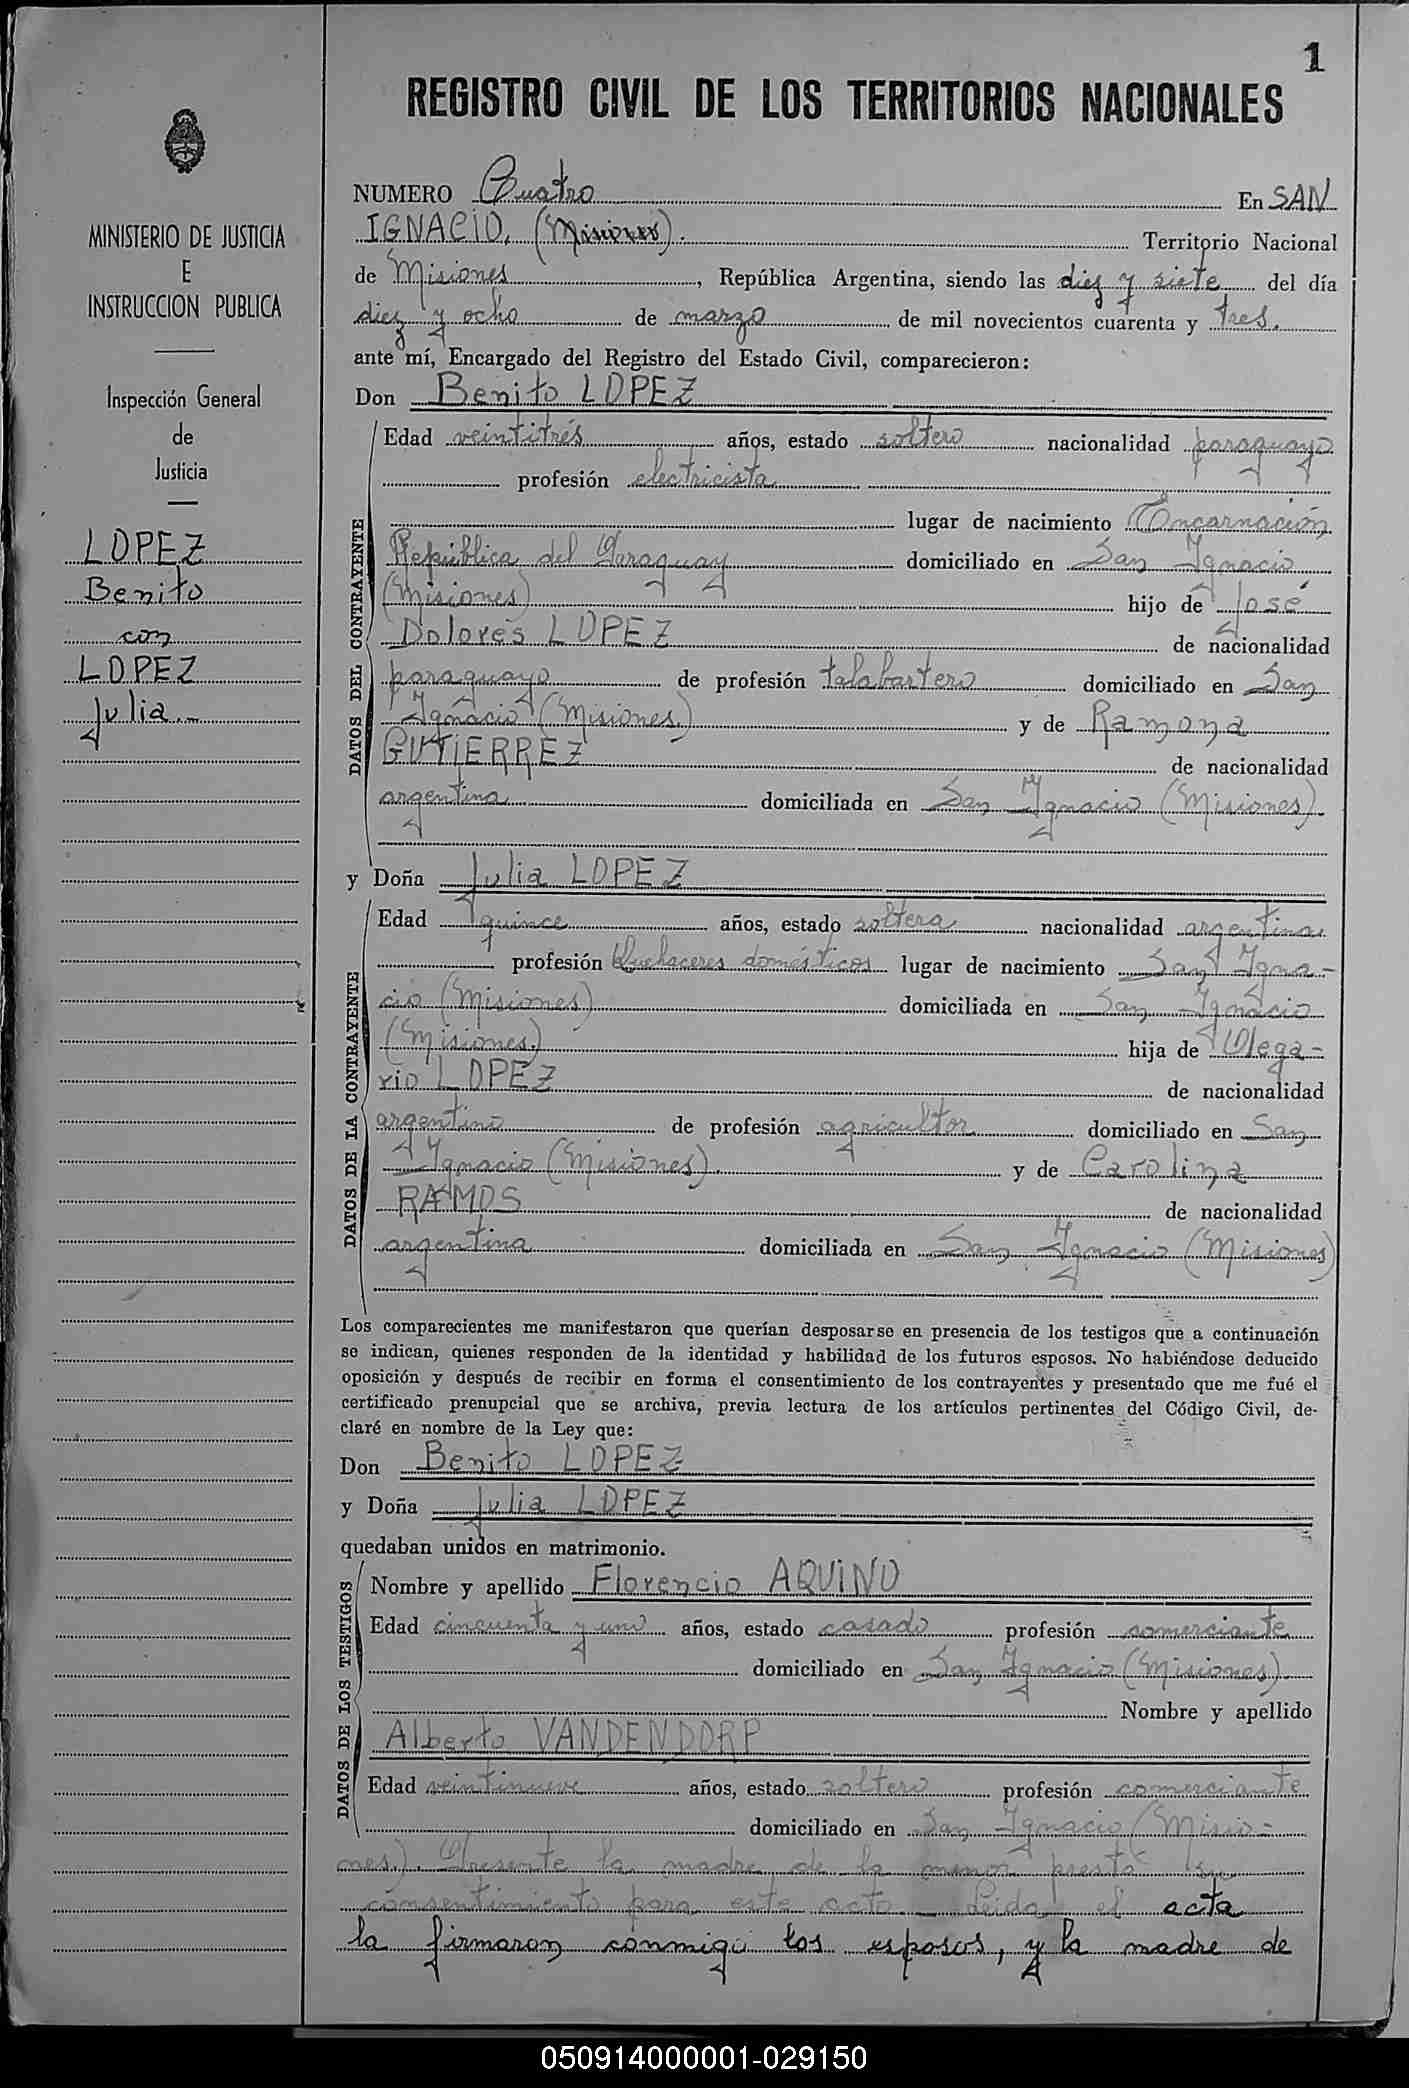 1
REGISTRO CIVIL DE LOS TERRITORIOS NACIONALES
MINISTERIO DE JUSTICIA
E
INSTRUCCION PUBLICA
Inspección General
de
Justicia
LOPEZ
Benito
con
LOPEZ
Julia.-
NUMERO Cuatro En SAN
IGNACIO, (Misiones). Territorio Nacional
de Misiones, República Argentina, siendo las diez y siete del día
diez y ocho de marzo de mil novecientos cuarenta y tres.
ante mí, Encargado del Registro del Estado Civil, comparecieron:
Don Benito LOPEZ
DATOS DEL CONTRAYENTE
Edad veintitrés años, estado soltero nacionalidad paraguayo
profesión electricista
lugar de nacimiento Encarnación
República del Paraguay domiciliado en San Ignacio
(Misiones) hijo de José
Dolores LOPEZ de nacionalidad
paraguayo de profesión talabartero domiciliado en San
Ignacio (Misiones.) y de Ramona
GUTIERREZ de nacionalidad
argentina domiciliada en San Ignacio (Misiones).
y Doña Julia LOPEZ
DATOS DE LA CONTRAYENTE
Edad quince años, estado soltera nacionalidad argentina
profesión Quehaceres domésticos lugar de nacimiento San Igna-
cio (Misiones) domiciliada en San Ignacio
(Misiones.) hija de Olega-
rio LOPEZ de nacionalidad
argentino de profesión agricultor domiciliado en San
Ignacio (Misiones). y de Carolina
RAMOS de nacionalidad
argentina domiciliada en San Ignacio (Misiones)
Los comparecientes me manifestaron que querían desposarse en presencia de los testigos que a continuación
se indican, quienes responden de la identidad y habilidad de los futuros esposos. No habiéndose deducido
oposición y después de recibir en forma el consentimiento de los contrayentes y presentado que me fué el
certificado prenupcial que se archiva, previa lectura de los artículos pertinentes del Código Civil, de-
claré en nombre de la Ley que:
Don Benito LOPEZ
y Doña Julia LOPEZ
quedaban unidos en matrimonio.
DATOS DE LOS TESTIGOS
Nombre y apellido Florencio AQUINO
Edad cincuenta y uno años, estado casado profesión comerciante
domiciliado en San Ignacio (Misiones).
Nombre y apellido
Alberto VANDENDORP
Edad veintinueve años, estado soltero profesión comerciante
domiciliado en San Ignacio (Misio-
nes). Presente la madre de la menor prestó su
consentimiento para este acto. Leida el acta
la firmaron conmigo los esposos, y la madre de
050914000001-029150